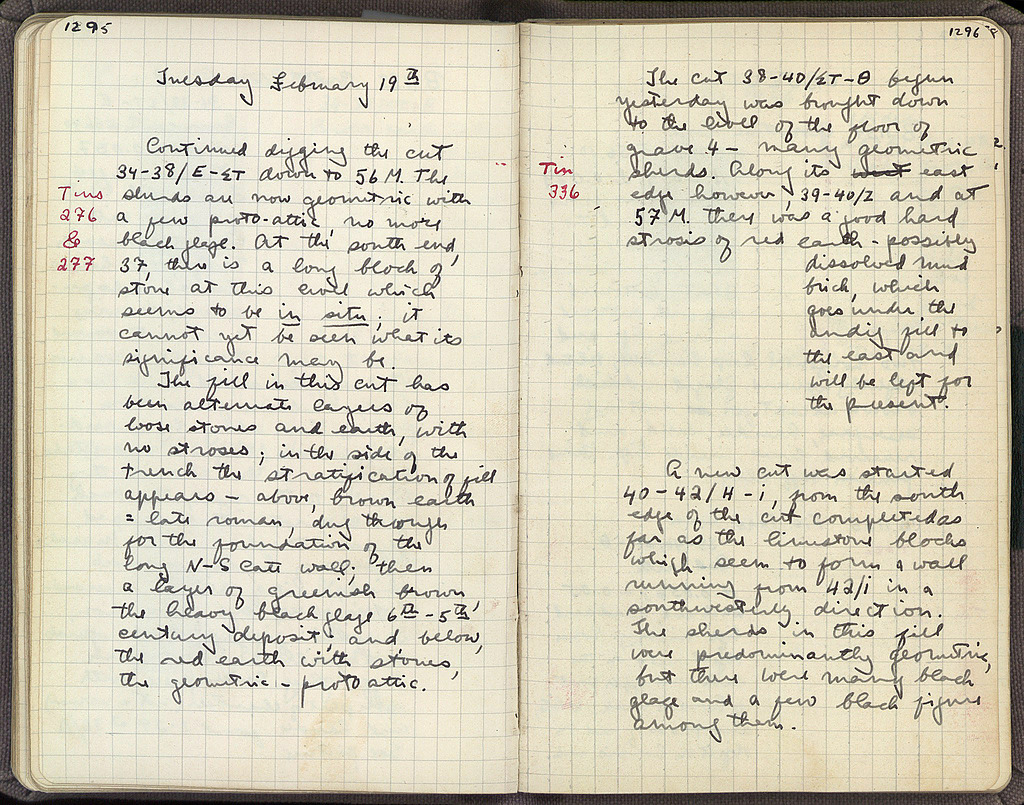 1295
Tuesday February 19th
Continued digging the cut
34-38/E-ΣT down to 56 M. The
Tins
276
&
277
sherds are now geometric with
a few proto-attic, no more
black glaze. At the south end,
37, there is a long block of
stone at this level which
seems to be in situ; it
cannot yet be seen what its
significance may be.
The fill in this cut has
been alternate layers of
loose stones and earth, with
no stroses; in the side of the
trench the stratification of fill
appears - above, brown earth
= late roman, dug through
for the foundation of the
long N-S late wall; then
a layer of greenish brown,
the heavy black glaze 6th-5th
century deposit; and below,
the red earth with stones,
the geometric - proto attic.
1296
The cut 38-40/ΣT-Θ begun
yesterday was brought down
to the level of the floor of
grave 4 - many geometric
Tin
336
sherds. Along its west east
edge however, 39-40/Z and at
57 M. there was a good hard
strosis of red earth - possibly
dissolved mud
brick, which
goes under the
undug fill to
the east and
will be left for
the present.
A new cut was started
40-42/H-i, from the south
edge of the cut completed as
far as the limestone blocks
which seem to form a wall
running from 42/i in a
southwesterly direction.
The sherds in this fill
were predominantly geometric,
but there were many black
glaze and a few black figure
among them.